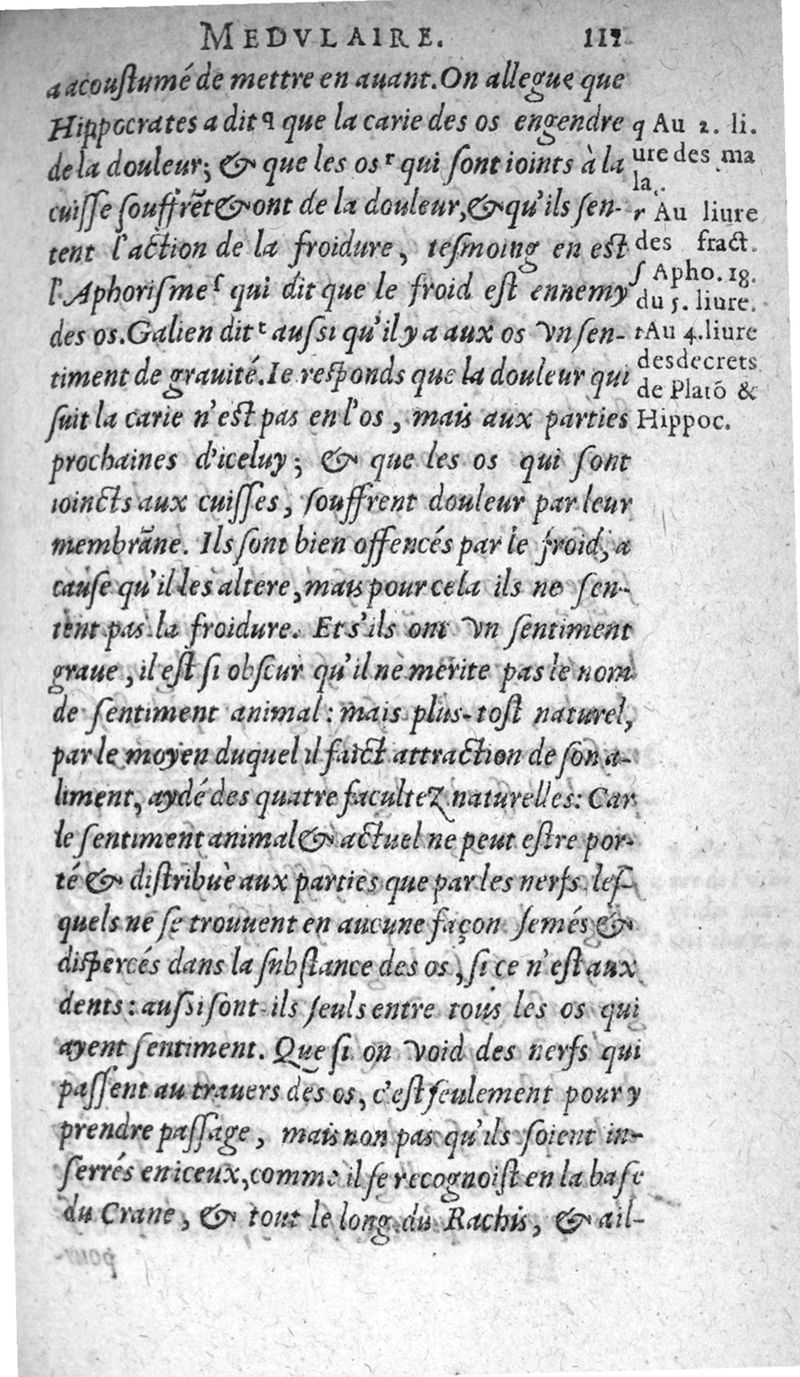 MEDVLAIRE. 111
a acouſtumé de mettre en auant. On allegue que
Hippocrates a dit q que la carie des os engendre
de la douleur; & que les os r qui ſont ioints à la
cuiſſe ſouffrẽt & ont de la douleur, & qu'ils ſen-
tent l'action de la froidure, teſmoing en est
l'Aphoriſme ſ qui dit que le froid eſt ennemy
des os. Galien dit t auſſi qu'il y a aux os vn ſen-
timent de grauité. Ie reſponds que la douleur qui
ſuit la carie n'est pas en l'os, mais aux parties
prochaines d'iceluy; & que les os qui ſont
ioincts aux cuiſſes, ſouffrent douleur par leur
membrane. Ils ſont bien offencés par le froid, a
cauſe qu'il les altere, mais pour cela ils ne ſen-
tent pas la froidure. Et s'ils ont vn ſentiment
graue, il eſt ſi obſcur qu'il ne merite pas le nom
de ſentiment animal: mais plus-toſt naturel,
par le moyen duquel il faict attraction de ſon a-
liment, aydé des quatre facultez naturelles: Car
le ſentiment animal & actuel ne peut eſtre por-
té & diſtribué aux parties que par les nerfs leſ-
quels ne ſe trouuent en aucune façon ſemés &
diſpercés dans la ſubſtance des os, ſi ce n'eſt aux
dents: auſſi ſont-ils ſeuls entre tous les os qui
ayent ſentiment. Que ſi on void des nerfs qui
paſſent au trauers des os, c'eſt ſeulement pour y
prendre paſſage, mais non pas qu'ils ſoient in-
ſerrés en iceux, comme il ſe recognoiſt en la baſe
du Crane, & tout le long du Rachis, & ail-
q Au 2. li.
ure des ma
la.
r Au liure
des fract.
ſ Apho. 18.
du 5. liure.
t Au 4. liure
des decrets
de Platõ &
Hippoc.